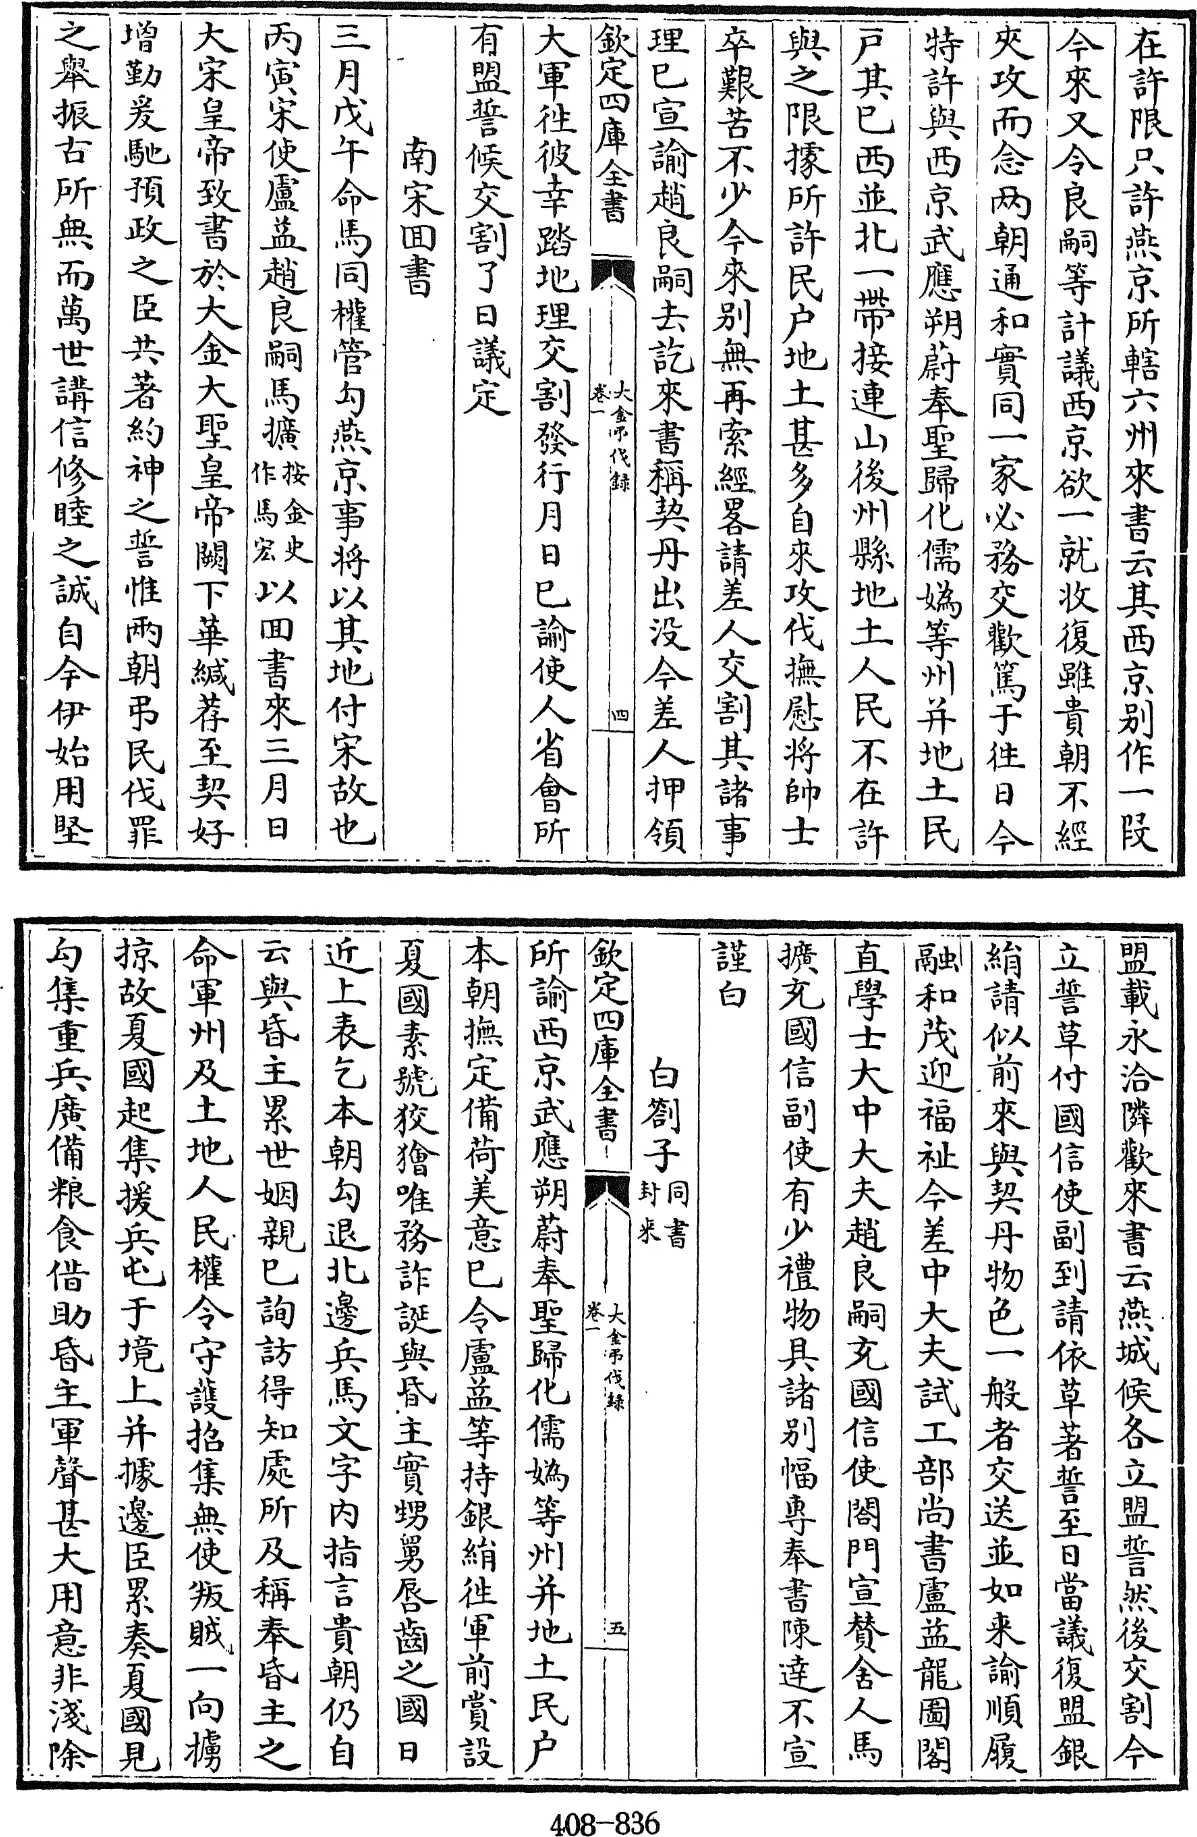 在許限只許燕京所轄六州來書云其西京别作一叚
今來又令良嗣等計議西京欲一就收復雖貴朝不經
夾攻而念两朝通和實同一家必務交歡篤于徃日今
特許與西京武應朔蔚奉聖歸化儒媯等州并地土民
戸其已西並北一帶接連山後州縣地土人民不在許
與之限據所許民户地土甚多自來攻伐撫慰将帥士
卒艱苦不少今來别無再索經畧請差人交割其諸事
理已宣諭趙良嗣去訖來書稱契丹出没今差人押領
欽定四庫全書
大金弔伐録
卷一
四
大軍徃彼幸踏地理交割發行月日已諭使人省會所
有盟誓候交割了日議定
南宋囬書
三月戊午命馬同權管勾燕京事将以其地付宋故也
丙寅宋使盧益趙良嗣馬擴按金史作馬宏以囬書來三月日
大宋皇帝致書於大金大聖皇帝闕下華緘荐至契好
增勤爰馳預政之臣共著約神之誓惟兩朝弔民伐罪
之舉振古所無而萬世講信修睦之誠自今伊始用堅
盟載永洽隣歡來書云燕城候各立盟誓然後交割今
立誓草付國信使副到請依草著誓至日當議復盟銀
絹請似前來與契丹物色一般者交送並如来諭順履
融和茂迎福祉今差中大夫試工部尚書盧益龍圖閣
直學士大中大夫趙良嗣充國信使閤門宣賛舍人馬
擴充國信副使有少禮物具諸别幅專奉書陳達不宣
謹白
白劄子同書封来
欽定四庫全書
大金弔伐録
卷一
五
所諭西京武應朔蔚奉聖歸化儒媯等州并地土民户
本朝撫定備荷美意已令盧益等持銀絹徃軍前賞設
夏國素號狡獪唯務詐誕與昏主實甥舅唇齒之國日
近上表乞本朝勾退北邊兵馬文字内指言貴朝仍自
云與昏主累世姻親已詢訪得知處所及稱奉昏主之
命軍州及土地人民權令守護招集無使叛賊一向擄
掠故夏國起集援兵屯于境上并據邊臣累奏夏國見
勾集重兵廣備粮食借助昏主軍聲甚大用意非淺除
408-836